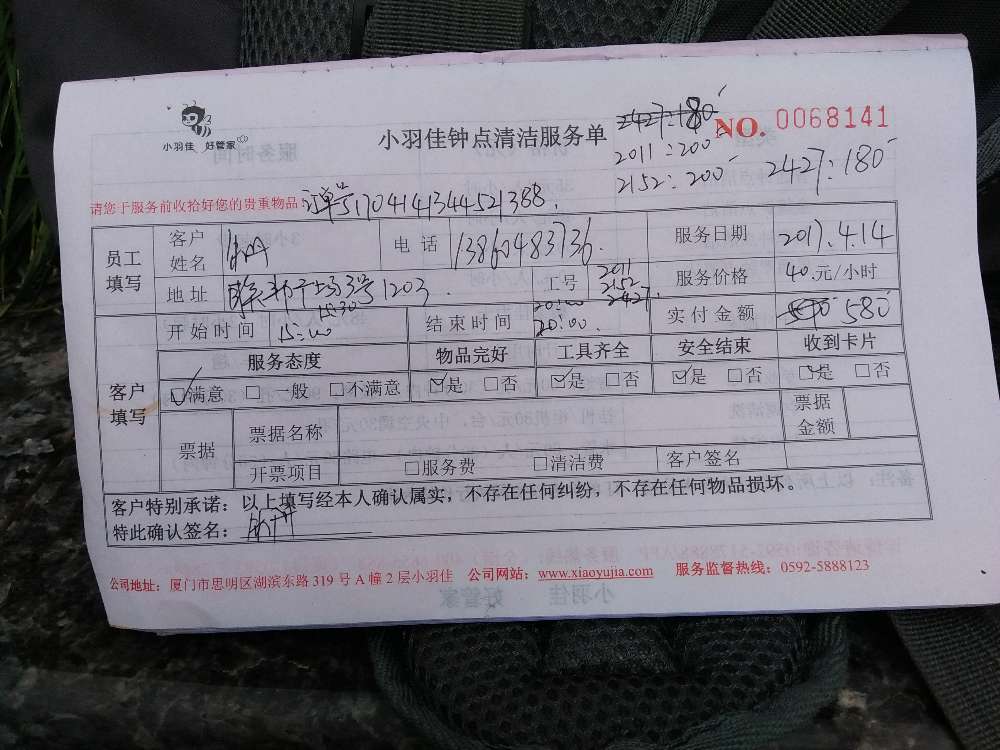 小羽佳 好管家
小羽佳钟点清洁服务单
2427:180
NO. 0068141
2011:200
2152:200
2427:180
请您于服务前收拾好您的贵重物品
订单号170414134452
员工填写
客户姓名
电话 13860483736.
服务日期 2017.4.14
地址 3号1203.
工号 2011 2152 2427.
服务价格 40.元/小时
开始时间 15:30 15:00
结束时间 20:00 20:00.
实付金额 580
客户填写
服务态度 物品完好 工具齐全 安全结束 收到卡片
☑满意 □一般 □不满意 ☑是 □否 ☑是 □否 ☑是 □否 ☑是 □否
票据 票据名称 票据金额
开票项目 □服务费 □清洁费 客户签名
客户特别承诺:以上填写经本人确认属实,不存在任何纠纷,不存在任何物品损坏。
特此确认签名:
公司地址:厦门市思明区湖滨东路 319 号 A 幢 2 层小羽佳 公司网站:www.xiaoyujia.com 服务监督热线:0592-5888123